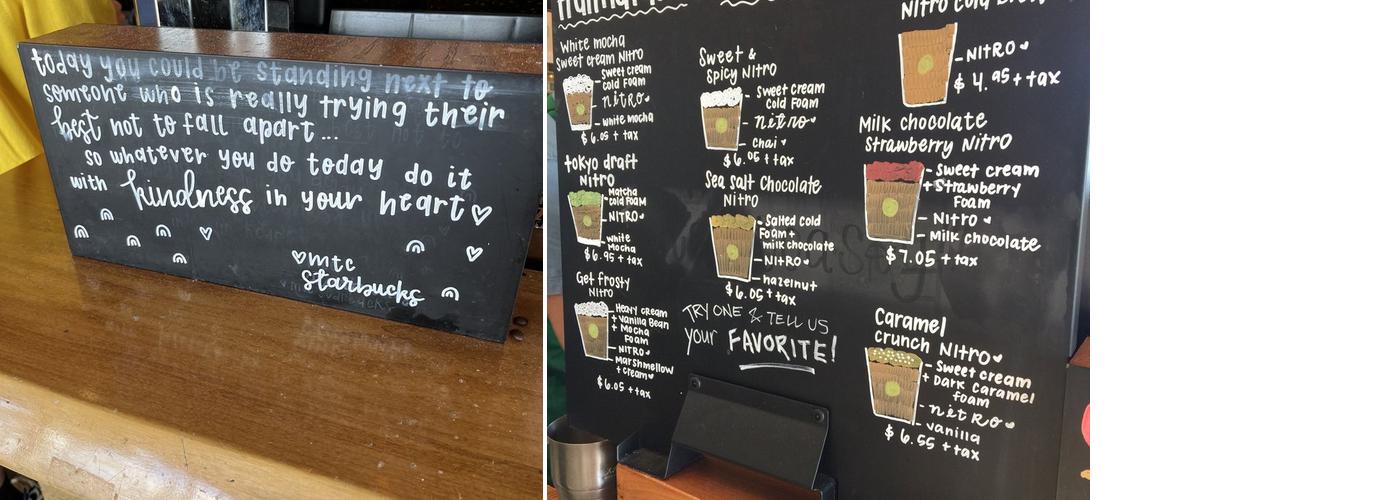 today you could be standing next to
someone who is really trying their
best not to fall apart...
so whatever you do today do it
with kindness in your heart
mtc
Starbucks
White mocha
Sweet cream Nitro
Sweet cream
cold Foam
nitro
white mocha
$6.05 + tax
tokyo draft
Nitro
Matcha
cold Foam
NITRO
white
Mocha
$6.95 + tax
Get frosty
Nitro
Heavy cream
+ vanilla Bean
+ Mocha
Foam
NITRO
Marshmellow
+ cream
$6.05 + tax
Sweet &
Spicy Nitro
Sweet cream
Cold Foam
nitro
chai
$6.05 + tax
Sea Salt Chocolate
Nitro
Salted cold
Foam +
milk chocolate
NITRO
hazelnut
$6.05 + tax
TRY ONE & TELL US
your FAVORITE!
Nitro Cold Brew
NITRO
$4.95 + tax
Milk chocolate
Strawberry Nitro
Sweet cream
+ Strawberry
Foam
NITRO
Milk chocolate
$7.05 + tax
Caramel
crunch Nitro
Sweet cream
+ Dark caramel
foam
nitro
vanilla
$6.55 + tax